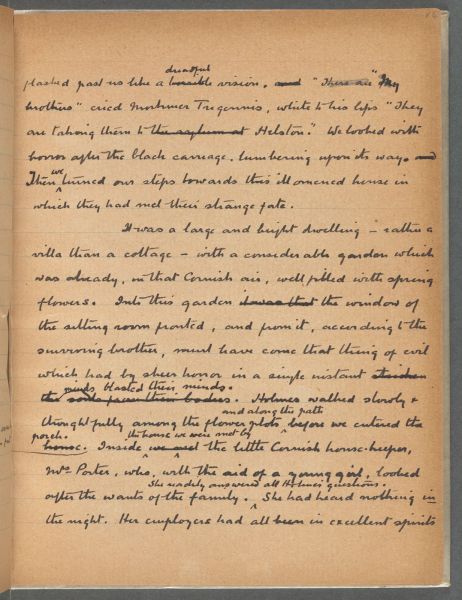 dreadful
flashed past us like a horrible vision. and "There are "My
brothers" cried Mortimer Tregennis, white to his lips "They
are taking them to the asylum at Helston". We looked with
horror after the black carriage, lumbering upon its way. and
we
Then turned our steps towards this ill omened house in
which they had met their strange fate.
It was a large and bright dwelling – rather a
villa than a cottage – with a considerable garden which
was already, in that Cornish air, well filled with spring
flowers. Into this garden it was that the window of
the sitting room fronted, and from it, according to the
surviving brother, must have come that thing of evil
which had by sheer horror in a single instant stricken
minds blasted their minds.
the souls from their bodies. Holmes walked slowly &
and along the path
thoughtfully among the flower plots before we entered the
porch. the house we were met by
house. Inside we met the little Cornish house-keeper,
Mrs Porter, who, with the aid of a young girl, looked
She readily answered all Holmes' questions.
after the wants of the family. She had heard nothing in
the night. Her employers had all been in excellent spirits